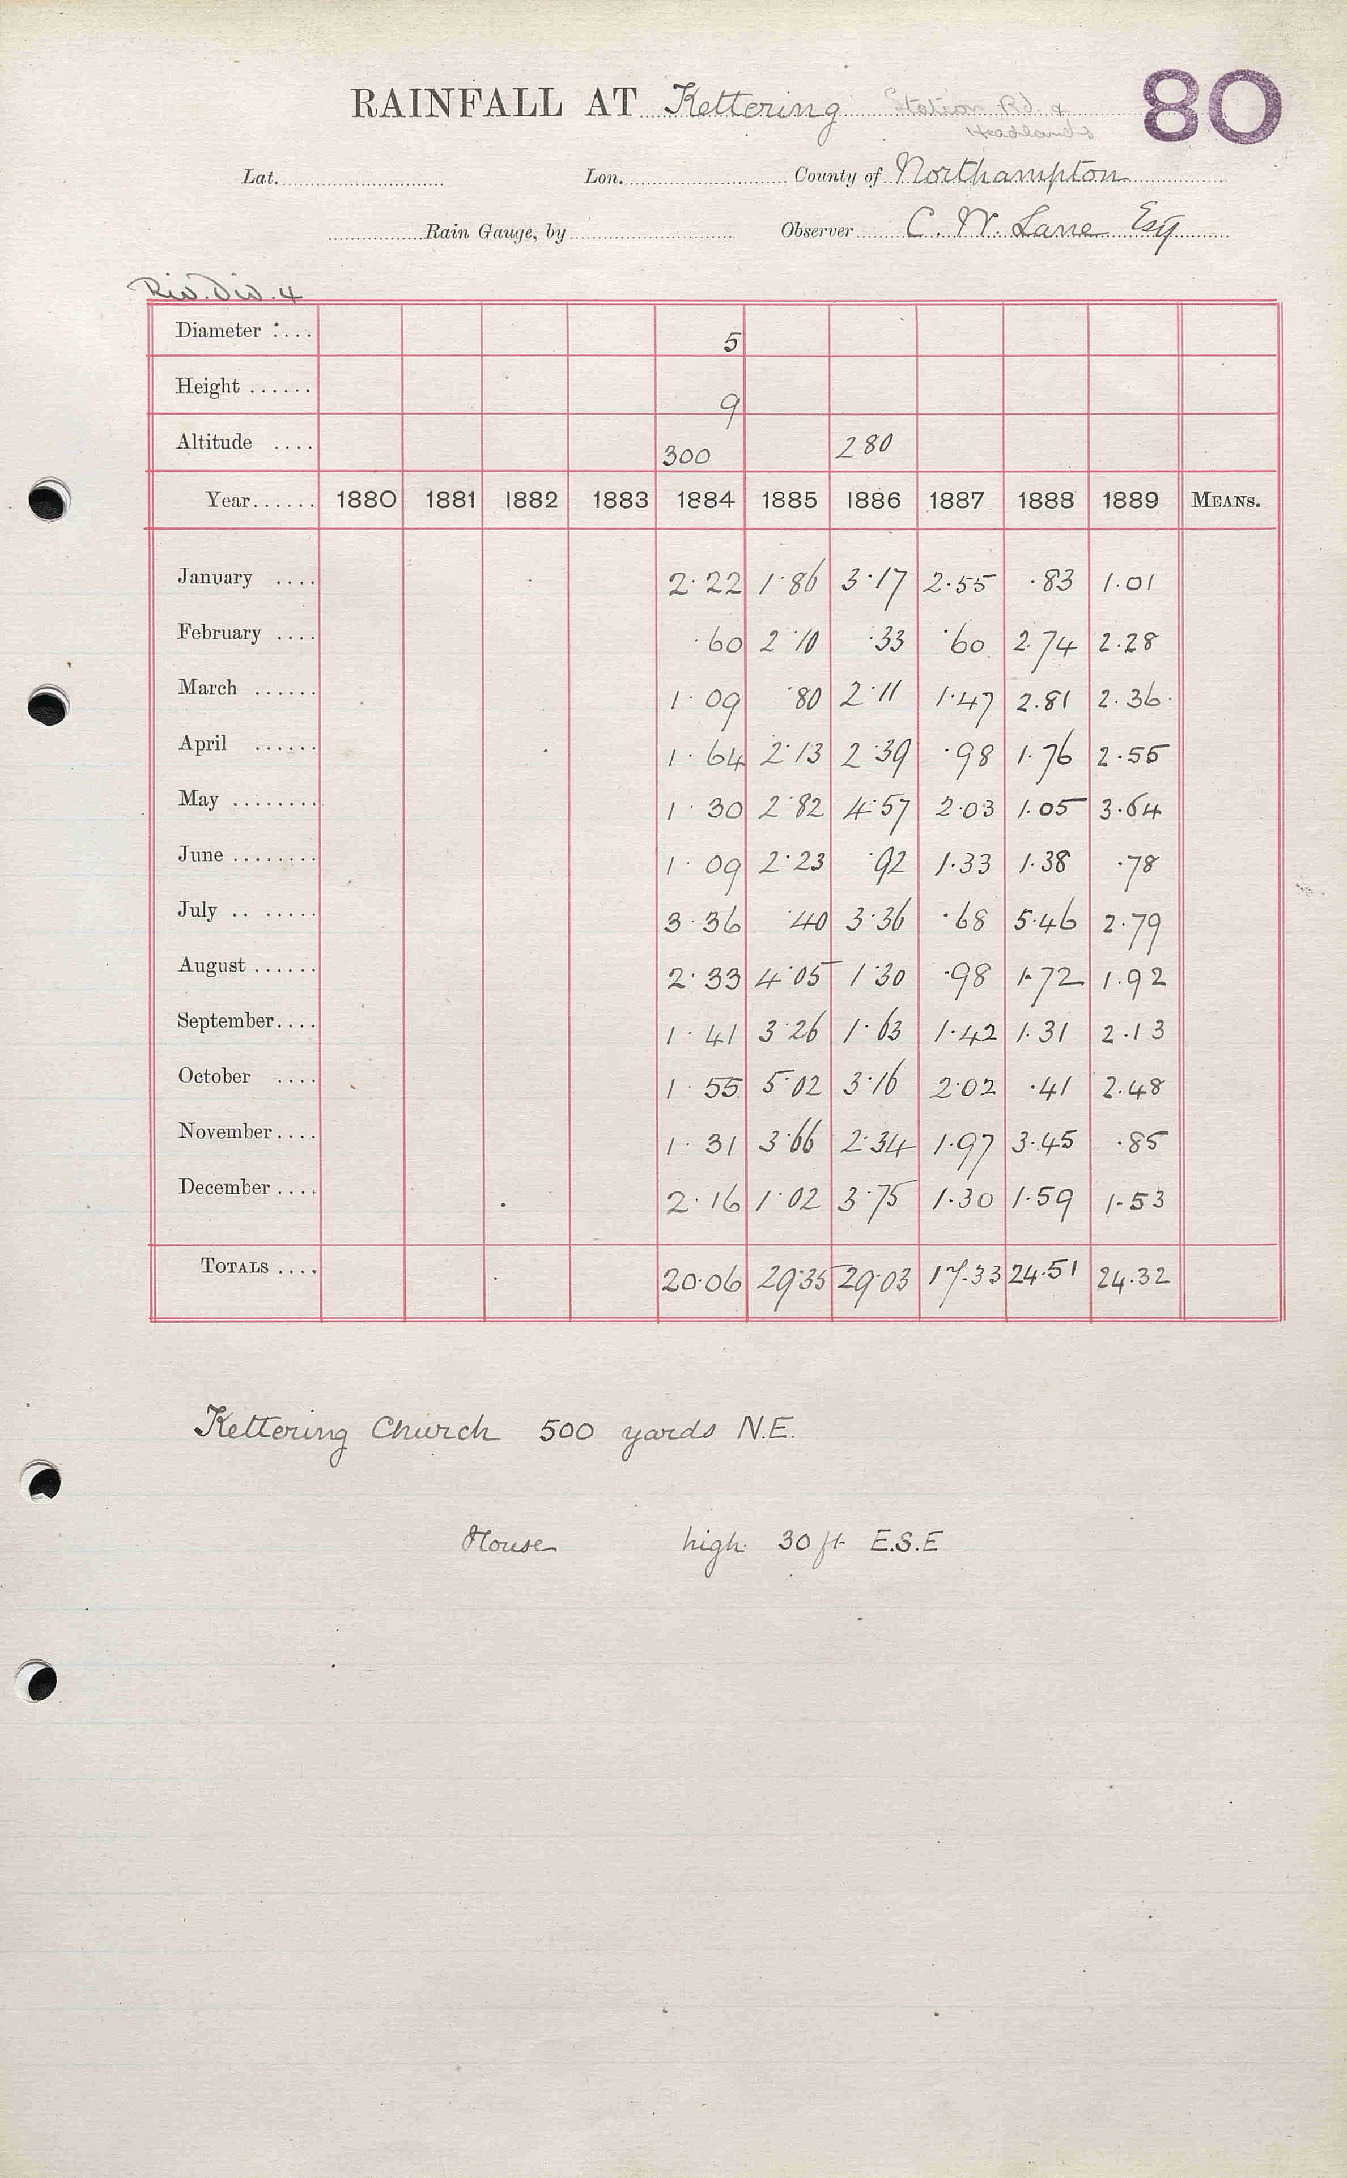 RAINFALL AT Kettering Station Rd. & 80
Headlands
Lat. Lon. County of Northampton
Rain Gauge, by Observer C. W. Lane Esq
Riv. Div. 4
Diameter 5
Height 9
Altitude 300 280
Year 1880 1881 1882 1883 1884 1885 1886 1887 1888 1889 MEANS.
January 2.22 1.86 3.17 2.55 .83 1.01
February .60 2.10 .33 .60 2.74 2.28
March 1.09 .80 2.11 1.47 2.81 2.36
April 1.64 2.13 2.39 .98 1.76 2.55
May 1.30 2.82 4.57 2.03 1.05 3.64
June 1.09 2.23 .92 1.33 1.38 .78
July 3.36 .40 3.36 .68 5.46 2.79
August 2.33 4.05 1.30 .98 1.72 1.92
September 1.41 3.26 1.63 1.42 1.31 2.13
October 1.55 5.02 3.16 2.02 .41 2.48
November 1.31 3.66 2.34 1.97 3.45 .85
December 2.16 1.02 3.75 1.30 1.59 1.53
TOTALS 20.06 29.35 29.03 17.33 24.51 24.32
Kettering Church 500 yards N.E.
House high 30 ft E.S.E